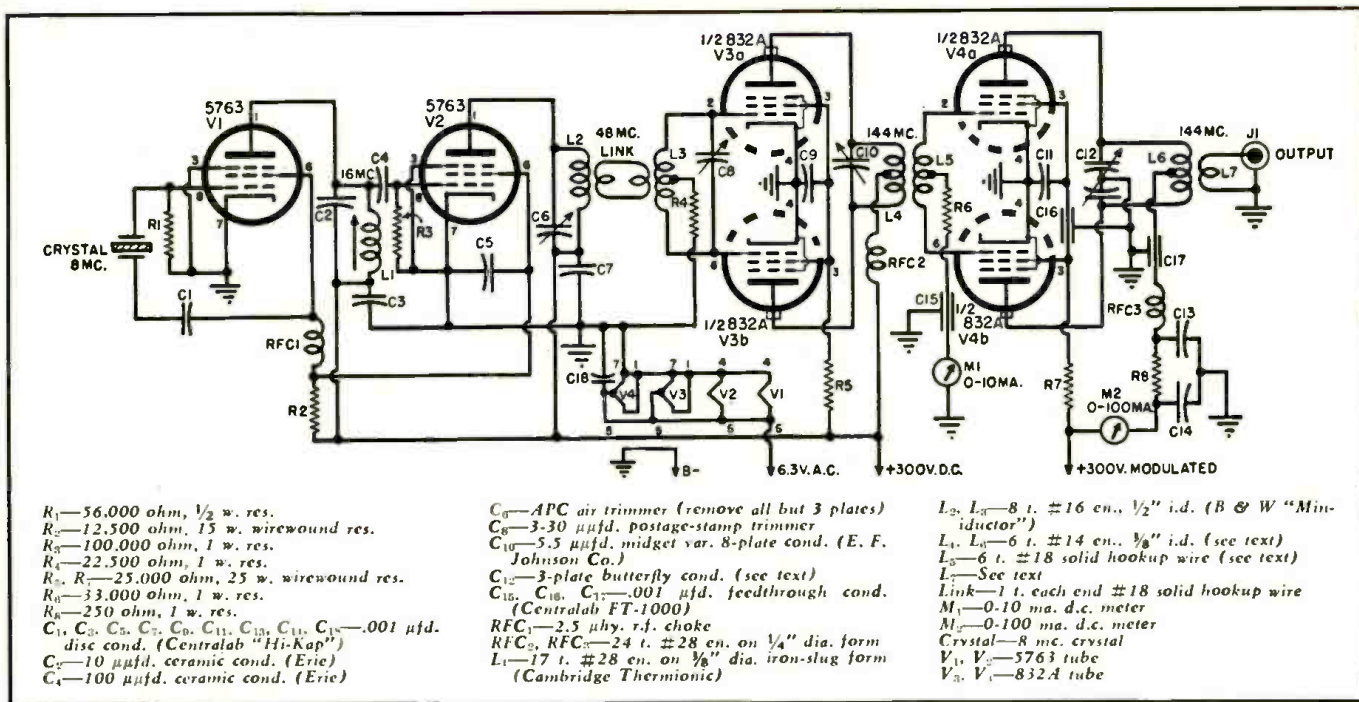 5763
V1
CRYSTAL
8MC.
R1
C1
RFC1
R2
C2
16MC
C4
L1
C3
R3
5763
V2
C5
L2
C6
C7
48 MC.
LINK
L3
R4
C8
1/2 832A
V3a
C9
1/2 832A
V3b
C18
V4
V3
V2
V1
R5
C10
144MC.
L4
RFC2
L5
R6
C15
M1
0-10MA.
1/2 832A
V4a
C11
C16
1/2
832A
V4b
R7
C12
144MC.
L6
L7
J1
OUTPUT
C17
RFC3
C13
R8
C14
M2
0-100MA.
B-
6.3V.A.C.
+300V.D.C.
+300V.MODULATED
R1—56,000 ohm, 1/2 w. res.
R2—12,500 ohm, 15 w. wirewound res.
R3—100,000 ohm, 1 w. res.
R4—22,500 ohm, 1 w. res.
R5, R7—25,000 ohm, 25 w. wirewound res.
R6—33,000 ohm, 1 w. res.
R8—250 ohm, 1 w. res.
C1, C3, C5, C7, C9, C11, C13, C14, C18—.001 μfd.
disc cond. (Centralab "Hi-Kap")
C2—10 μμfd. ceramic cond. (Erie)
C4—100 μμfd. ceramic cond. (Erie)
C6—APC air trimmer (remove all but 3 plates)
C8—3-30 μμfd. postage-stamp trimmer
C10—5.5 μμfd. midget var. 8-plate cond. (E. F.
Johnson Co.)
C12—3-plate butterfly cond. (see text)
C15, C16, C17—.001 μfd. feedthrough cond.
(Centralab FT-1000)
RFC1—2.5 μhy. r.f. choke
RFC2, RFC3—24 t. #28 en. on 1/4" dia. form
L1—17 t. #28 en. on 3/8" dia. iron-slug form
(Cambridge Thermionic)
L2, L3—8 t. #16 en., 1/2" i.d. (B & W "Min-
iductor")
L4, L6—6 t. #14 en., i.d. (see text)
L5—6 t. #18 solid hookup wire (see text)
L7—See text
Link—1 t. each end #18 solid hookup wire
M1—0-10 ma. d.c. meter
M2—0-100 ma. d.c. meter
Crystal—8 mc. crystal
V1, V2—5763 tube
V3, V4—832A tube